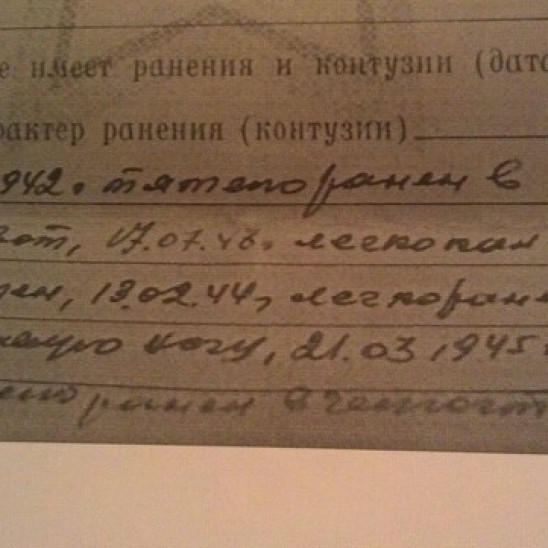 е имеет ранения и контузии (дата
рактер ранения (контузии)
942. тяжело ранен в
вот, 17.07.43. легко ран
ен, 13.02.44, легко ране
ногу, 21.03.1945
ранен в